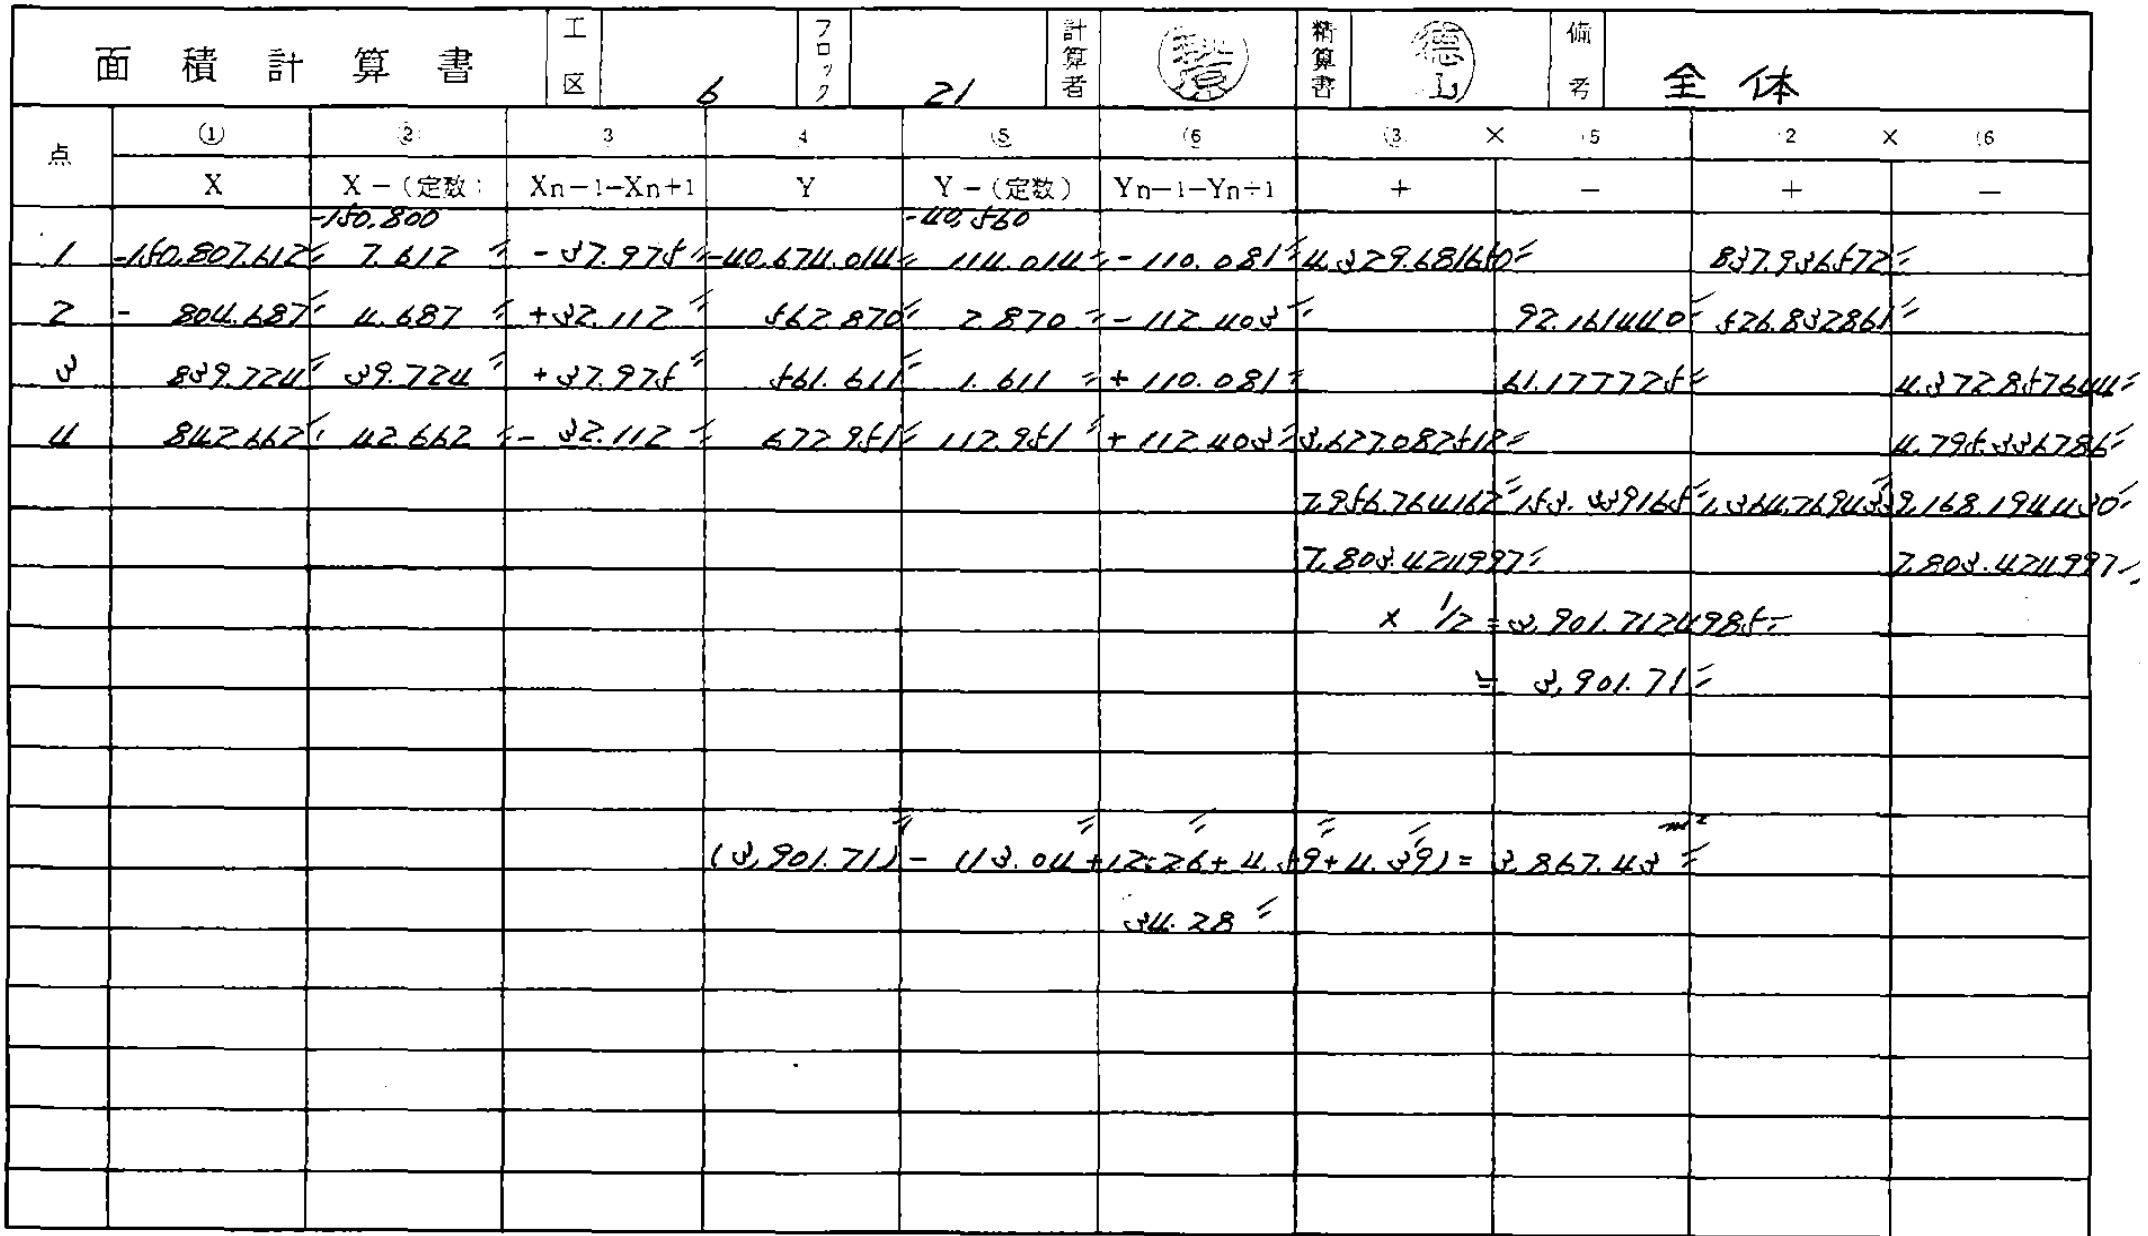 面積計算書 工区 6 ブロック 21 計算者 精算書 徳山 備考 全体
点 ① ② 3 4 ⑤ (6 (3 × 5 2 × (6
X X-(定数) Xn-1-Xn+1 Y Y-(定数) Yn-1-Yn+1 + - + -
-150,800 -40,560
1 -150,807.612 7.612 -37.975 -40,674.014 114.014 -110.081 4,329.681650 837.936572
2 - 804.687 4.687 +32.112 562.870 2.870 -112.403 92.161440 526.832861
3 839.724 39.724 +37.975 561.611 1.611 +110.081 61.177725 4,372.857644
4 842.662 42.662 -32.112 672.951 112.951 +112.403 3,627.082512 4,795.336786
7,956.764162 153.339165 1,364.769433 9,168.194430
7,803.424997 7,803.424997
× 1/2 = 3,901.7124985
≒ 3,901.71
(3,901.71) - (13.04+12.26+4.59+4.39) = 3,867.43 m²
34.28